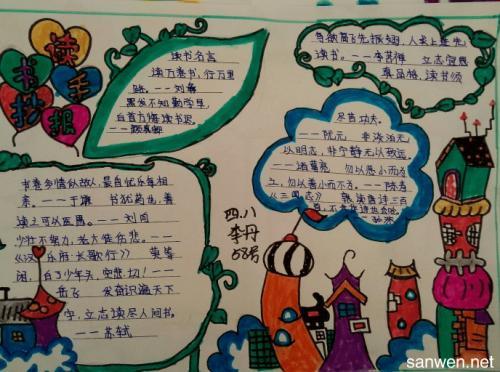 读书手抄报
读书名言
读万卷书,行万里
路。——刘彝
黑发不知勤学早,
白首方悔读书迟。
——颜真卿
鸟欲高飞先振翅,人求上进先
读书。——李苦禅 立志宜思
真品格,读书须
尽苦功夫。
——阮元 非淡泊无
以明志,非宁静无以致远。
——诸葛亮 勿以恶小而为
之,勿以善小而不为。——陈寿
《三国志》 熟读唐诗三百
首,不会作诗也会吟。
孙洙
书卷多情似故人,晨昏忧乐每相
亲。——于谦 书犹药也,善
读之可以医愚。——刘向
少壮不努力,老大徒伤悲。——
《汉乐府·长歌行》 莫等
闲,白了少年头,空悲切!——
岳飞 发奋识遍天下
字,立志读尽人间书。
——苏轼
四.八
李丹
58号
sanwen.net